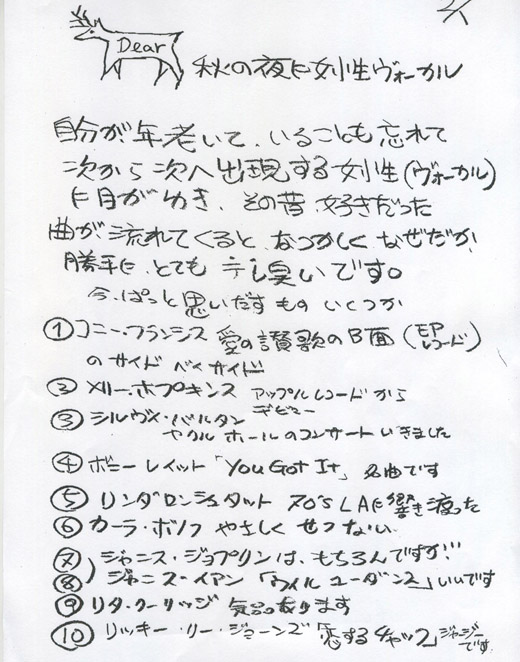 Dear
秋の夜に女性ヴォーカル
自分が年老いて、いることも忘れて
次から次へ出現する女性(ヴォーカル)
に目がゆき、その昔、好きだった
曲が流れてくると、なつかしくなぜだか
勝手に、とても テレ臭いです。
今、ぱっと思いだすもの いくつか
① コニー・フランシス 愛の讃歌のB面(EPレコード)
のサイド ベイサイド
② メリー・ホプキンス アップルレコードから
デビュー
③ シルヴィ・バルタン
ヤクルホールのコンサートいきました
④ ボニー レイット「You Got It」名曲です
⑤ リンダロンシュタット 70's LAに響き渡った
⑥ カーラ・ボノフ やさしく せつない
⑦ ジャニス・ジョプリンは、もちろんですが
⑧ ジャニス・イアン「ウィル ユーダンス」いいです
⑨ リタ・クーリッジ 気品あります
⑩ リッキー・リー・ジョーンズ「恋するチャック」ジャジーです